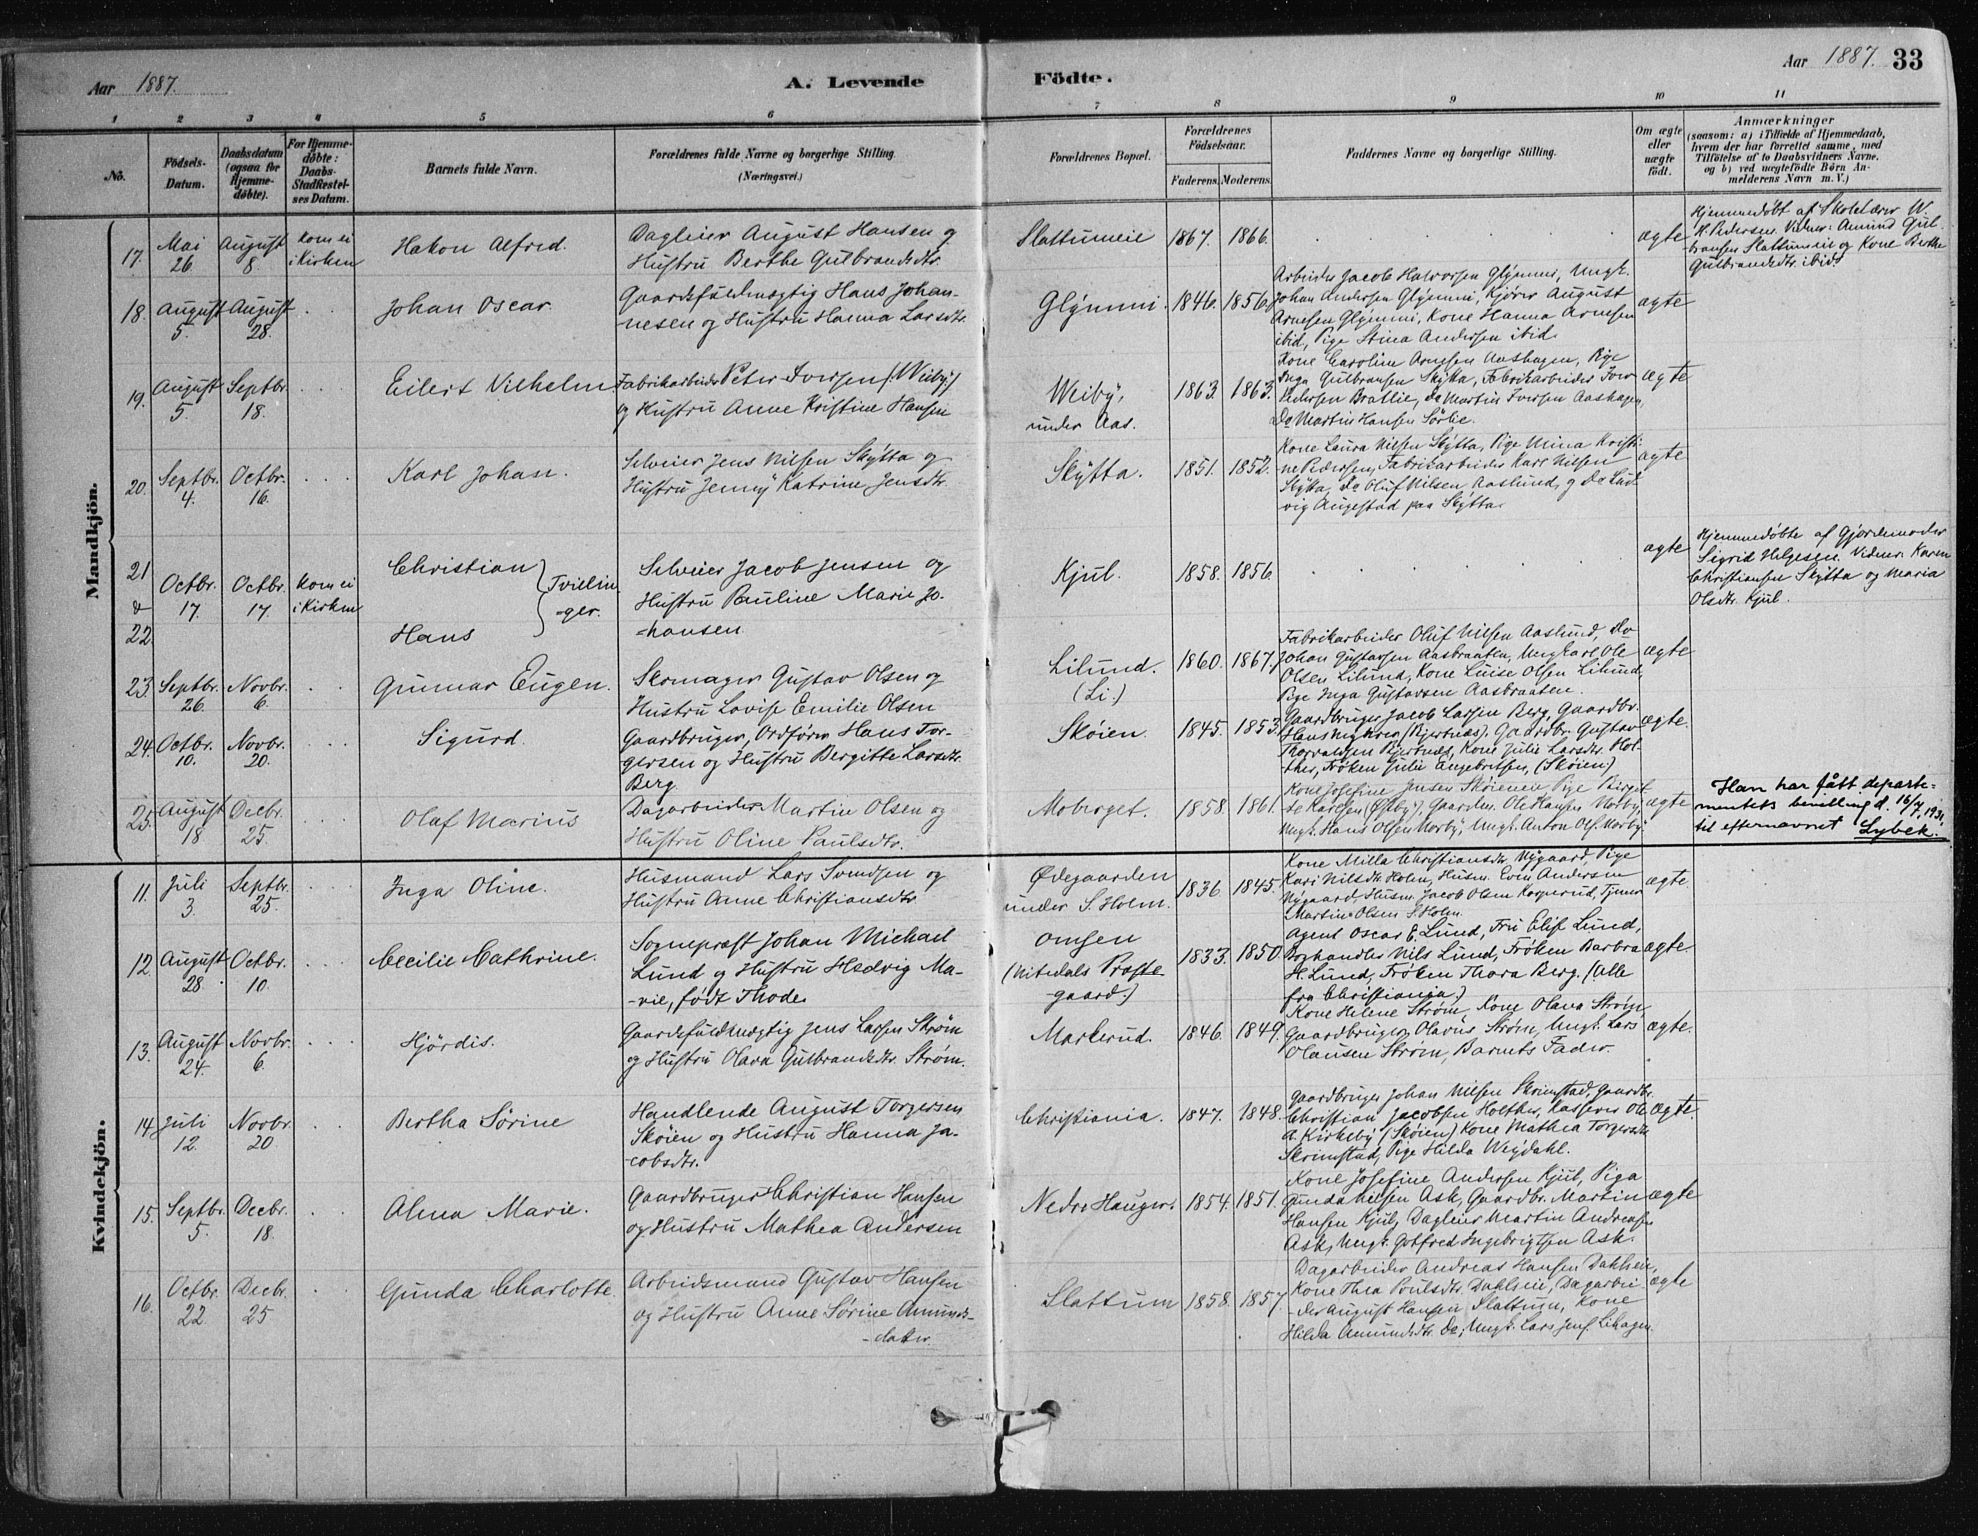 Aar 1887.
A. Levende
Födte.
Aar 1887. 33
1 2 3 4 5 6 7 8 9 10 11
No.
Födsels-
Datum.
Daabsdatum
(ogsaa for
Hjemme-
døbte).
For Hjemme-
døbte:
Daabs-
Stadfestel-
ses Datum.
Barnets fulde Navn.
Forældrenes fulde Navne og borgerlige Stilling.
(Næringsvei.)
Forældrenes Bopæl.
Forældrenes
Födselsaar.
Faderens. Moderens.
Faddernes Navne og borgerlige Stilling.
Om ægte
eller
uægte
født.
Anmærkninger
(saasom: a) i Tilfælde af Hjemmedaab,
hvem der har forrettet samme, med
Tilføielse af to Daabsvidners Navne,
og b) ved uægtefødte Børn An-
melderens Navn m. V.)
Mandkjön.
17. Mai 26. August 8. kom ei i Kirken
Hakon Alfred.
Dagleier August Hansen og
Hustru Berthe Gulbrandsdtr.
Slattumeie 1867. 1866. ægte
Hjemmedøbt af Skolelærer W.
H. Pedersen. Vidner: Amund Gul-
bransen Slattumeie og Kone Berthe
Gulbrandsdtr. ibid.
18. August 5. August 28.
Johan Oscar.
Gaardsfuldmægtig Hans Johan-
nesen og Hustru Hanna Larsdtr.
Glymmi. 1846. 1856.
Arbeider Jacob Halvorsen Glymmi, Ungk.
Johan Andersen Glymmi, Kjører August
Arnesen Glymmi, Kone Hanna Arnesen
ibid, Pige Stina Andersen ibid.
ægte
19. August 5. Septbr. 18.
Eilert Vilhelm.
Fabrikarbeider Peter Iversen (Weiby)
og Hustru Anne Kristine Hansen
Weiby,
under Aas.
1863. 1863.
Kone Caroline Arnesen Aashagen, Pige
Inga Gulbransen Skytta, Fabrikarbeider Iver
Pedersen Bratlie, do Martin Iversen Aashagen,
Do Martin Hansen Sørlie.
ægte
20. Septbr. 4. Octbr. 16.
Karl Johan.
Selveier Jens Nilsen Skytta og
Hustru Jenny Katrine Jensdtr.
Skytta. 1851. 1852.
Kone Laura Nilsen Skytta, Pige Mina Kristi-
ne Pedersen, Fabrikarbeider Karl Nilsen
Skytta, do Oluf Nilsen Aaslund, og Do Lud-
vig Augestad paa Skytta.
ægte
21 & 22 Octbr. 17. Octbr. 17. kom ei i Kirken
Christian
Hans
Tvillin-
ger.
Selveier Jacob Jensen og
Hustru Pauline Marie Jo-
hansen
Kjul. 1858. 1856. ægte
Hjemmedøbte af Gjordemoder
Sigrid Helgesen. Vidner: Karen
Christiansen Skytta og Maria
Olsdtr. Kjul.
23. Septbr. 26. Novbr. 6.
Gunnar Eugen.
Skomager Gustav Olsen og
Hustru Lovise Emilie Olsen
Lilund.
(Li)
1860. 1867.
Fabrikarbeider Oluf Nilsen Aaslund, do
Johan Gustavsen Aasbraaten, Ungkarl Ole
Olsen Lilund, Kone Luise Olsen Lilund,
Pige Inga Gustavsen Aasbraaten.
ægte
24. Octbr. 10. Novbr. 20.
Sigurd.
Gaardbruger, Ordfører Hans Tor-
gersen og Hustru Bergitte Larsdtr.
Berg
Skøien. 1845. 1853.
Gaardbruger Jacob Larsen Berg, Gaardbr.
Hans (Bjertnæs), Gaardbr. Gustav
Thorvaldsen Bjertnæs, Kone Julie Larsdtr. Hol-
ther, Frøken Julie Engebretsen, (Skøien)
ægte.
25. August 18 Decbr. 25.
Olaf Marius
Dagarbeider Martin Olsen og
Hustru Oline Paulsdtr.
Moberget. 1858. 1861.
Kone Josefine Jensen Skøienen, Pige Birgit-
te Karlsen (Østby), Gaardm. Ole Hansen Nørby,
Ungk. Hans Olsen Nørby, Ungk. Anton Ols. Nørby
ægte
Han har fått departe-
mentets bevilling d. 16/4 193
til efternavnet Lybek.
Kvindekjön.
11. Juli 3. Septbr. 25.
Inga Oline.
Husmand Lars Svendsen og
Hustru Anne Christiansdtr.
Ødegaarden
under S. Holm.
1836. 1845.
Kone Milla Christiansdtr. Nygaard, Pige
Kari Nilsdtr. Holm, Husm. Even Andersen
Nygaard, Husm. Jacob Olsen Kagnerud, Tjener
Martin Olsen S. Holm.
ægte
12. August 28. Octbr. 10.
Cecilie Cathrine.
Sognepræst Johan Michael
Lund og Hustru Hedvig Ma-
rie, født Thode.
omsen
(Nitedals Præste-
gaard.)
1833. 1850.
Agent Oscar E. Lund, Fru Elise Lund,
Boghandler Nils Lund, Frøken Barbra
H. Lund, Frøken Thora Berg. (Alle
fra Christiania.)
ægte.
13. August 24. Novbr. 6.
Hjördis.
Gaardsfuldmægtig Jens Larsen Strøm
og Hustru Olava Gulbrandsdtr. Strøm.
Markerud. 1846. 1849.
Kone Helene Strøm, Kone Olava Strøm,
Gaardbruger Olavus Strøm, Ungk. Lars
Olausen Strøm, Barnets Fader.
ægte.
14. Juli 12. Novbr. 20.
Bertha Sörine
Handlende August Torgersen
Skøien og Hustru Hanna Ja-
cobsdtr.
Christiania. 1847. 1848.
Gaardbruger Johan Nilsen Skrimstad, Gaardbr.
Christian Jacobsen Holther, Kasserer Ole
A. Kirkeby (Skøien) Kone Mathea Torgersdtr.
Skrimstad, Pige Hilda Weydahl.
ægte.
15. Septbr. 5. Decbr. 18.
Alma Marie.
Gaardbruger Christian Hansen
og Hustru Mathea Andersen
Nedre Hauger. 1854. 1851.
Kone Josefine Andersen Kjul, Piga
Gunda Nilsen Ask, Gaardbr. Martin
Hansen Kjul, Dagleier Martin Andreasen
Ask, Ungk. Gotfred Ingebrigtsen Ask.
ægte
16. Octbr. 22 Decbr. 25
Gunda Charlotte.
Arbeidsmand Gustav Hansen
og Hustru Anne Sørine Amunds-
datter.
Slattum 1858. 1857.
Dagarbeider Andreas Hansen Dahleie,
Kone Thea Poulsdtr. Dahleie, Dagarbei-
der August Hansen Slattum, Kone
Hilda Amundsdtr. do; Ungk. Lars Jens. Lihagen.
ægte